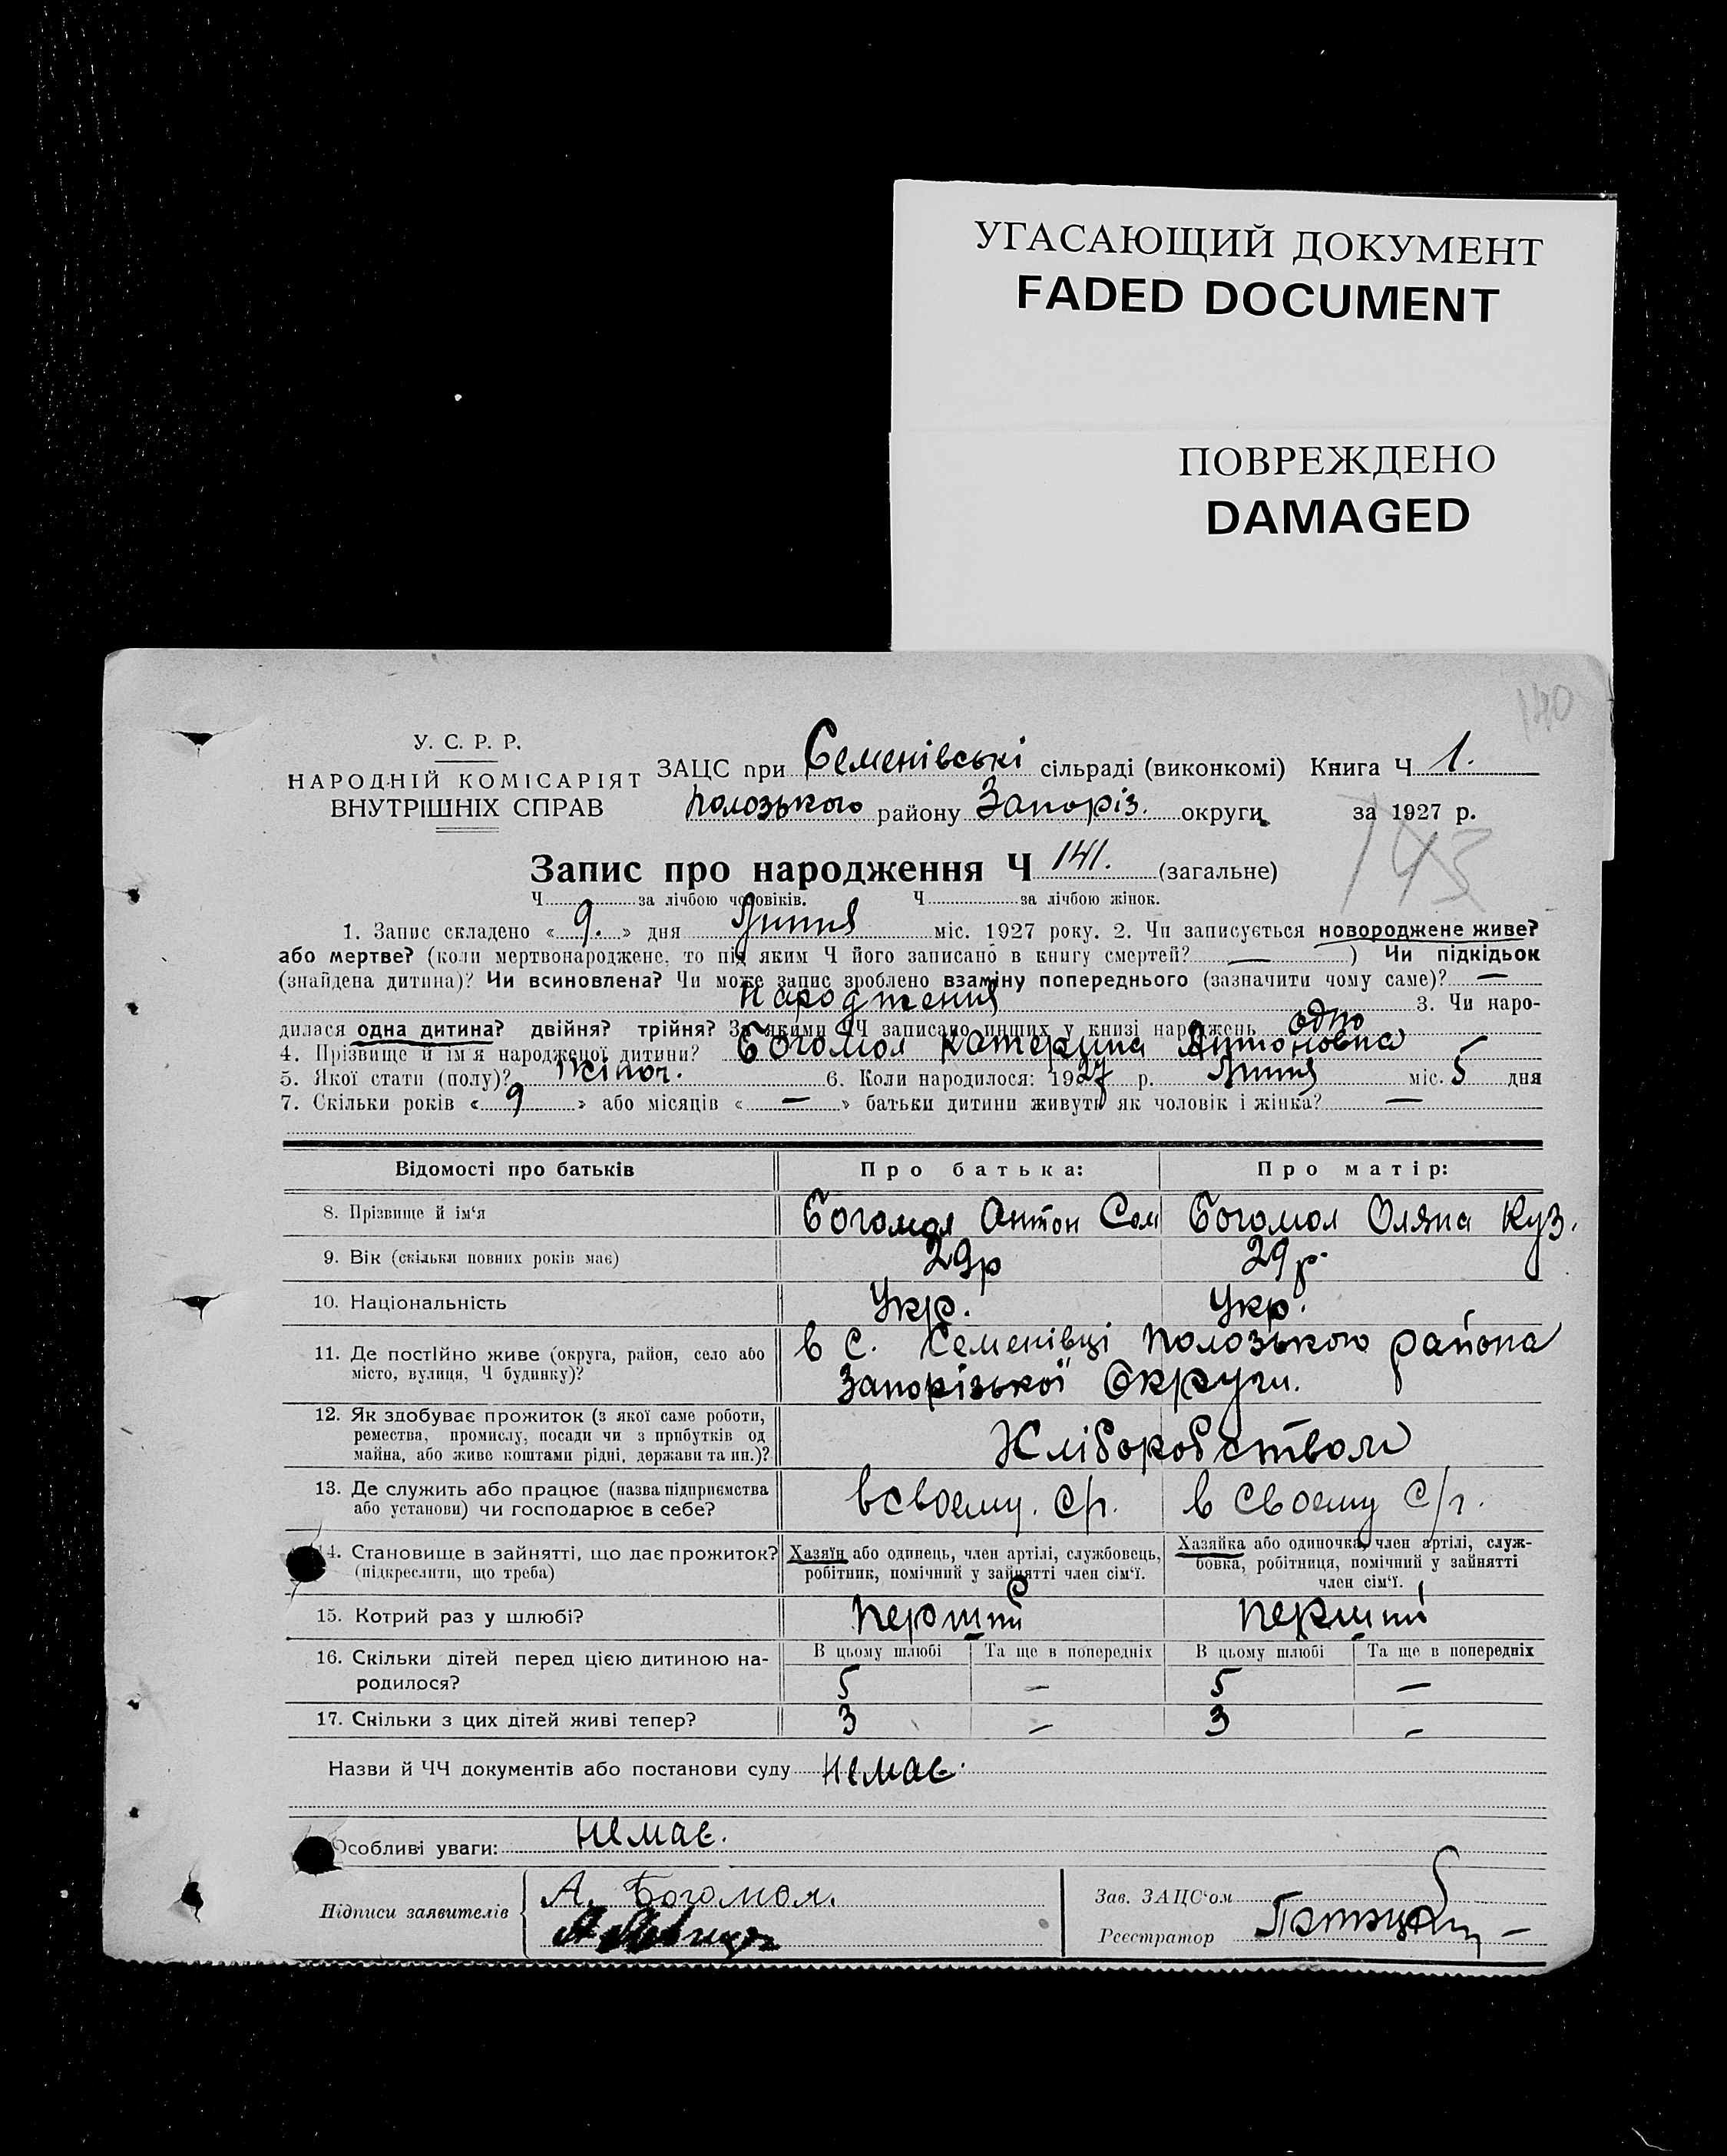 УГАСАЮЩИЙ ДОКУМЕНТ
FADED DOCUMENT
ПОВРЕЖДЕНО
DAMAGED
140
У. С. Р. Р.
НАРОДНІЙ КОМІСАРІЯТ
ВНУТРІШНІХ СПРАВ
ЗАЦС при Семенівські сільраді (виконкомі) Книга Ч 1.
Полозького району Запоріз. округи за 1927 р.
143
Запис про народження Ч 141. (загальне)
Ч за лічбою чоловіків. Ч за лічбою жінок.
1. Запис складено « 9. » дня Липня міс. 1927 року. 2. Чи записується новороджене живе?
або мертве? (коли мертвонароджене, то під яким Ч його записано в книгу смертей? — ) Чи підкідьок
(знайдена дитина)? Чи всиновлена? Чи може запис зроблено взаміну попереднього (зазначити чому саме)? —
народження 3. Чи наро-
дилася одна дитина? двійня? трійня? За якими ЧЧ записано инших у книзі народжень одно
4. Прізвище й ім'я народженої дитини? Богомол Катерина Антоновна
5. Якої стати (полу)? жіноч. 6. Коли народилося: 1927 р. Липня міс. 5 дня
7. Скільки років « 9 » або місяців « — » батьки дитини живуть як чоловік і жінка? —
Відомості про батьків Про батька: Про матір:
8. Прізвище й ім'я Богомол Антон Сем Богомол Оляна Куз.
9. Вік (скільки повних років має) 29р 29р.
10. Національність Укр. Укр.
11. Де постійно живе (округа, район, село або
місто, вулиця, Ч будинку)?
в С. Семенівці Полозького района
Запорізької Округи.
12. Як здобуває прожиток (з якої саме роботи,
ремества, промислу, посади чи з прибутків од
майна, або живе коштами рідні, держави та ин.)?
Хліборобством
13. Де служить або працює (назва підприємства
або установи) чи господарює в себе?
в своему. с/г. в своему с/г.
14. Становище в зайнятті, що дає прожиток?
(підкреслити, що треба)
Хазяїн або одинець, член артілі, службовець,
робітник, помічний у зайнятті член сім'ї.
Хазяйка або одиночка, член артілі, служ-
бовка, робітниця, помічний у зайнятті
член сім'ї.
15. Котрий раз у шлюбі? перший перший
16. Скільки дітей перед цією дитиною на-
родилося?
В цьому шлюбі Та ще в попередніх В цьому шлюбі Та ще в попередніх
5 — 5 —
17. Скільки з цих дітей живі тепер? 3 — 3 —
Назви й ЧЧ документів або постанови суду немає.
Особливі уваги: немає.
Підписи заявителів А. Богомол.
Зав. ЗАЦС'ом
Реєстратор